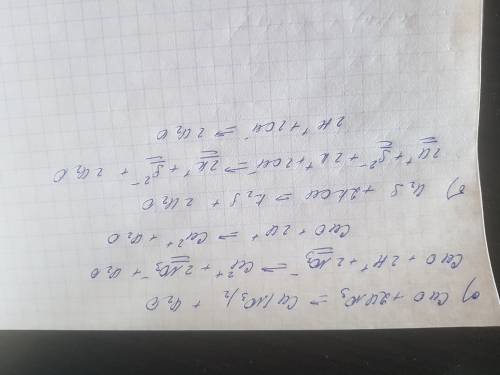 а) CaO + 2HNO₃ => Ca(NO₃)₂ + H₂O
CaO + 2H⁺ + 2NO₃⁻ => Ca²⁺ + 2NO₃⁻ + H₂O
CaO + 2H⁺ => Ca²⁺ + H₂O
б) H₂S + 2KOH => K₂S + 2H₂O
2H⁺ + S²⁻ + 2K⁺ + 2OH⁻ => 2K⁺ + S²⁻ + 2H₂O
2H⁺ + 2OH⁻ => 2H₂O